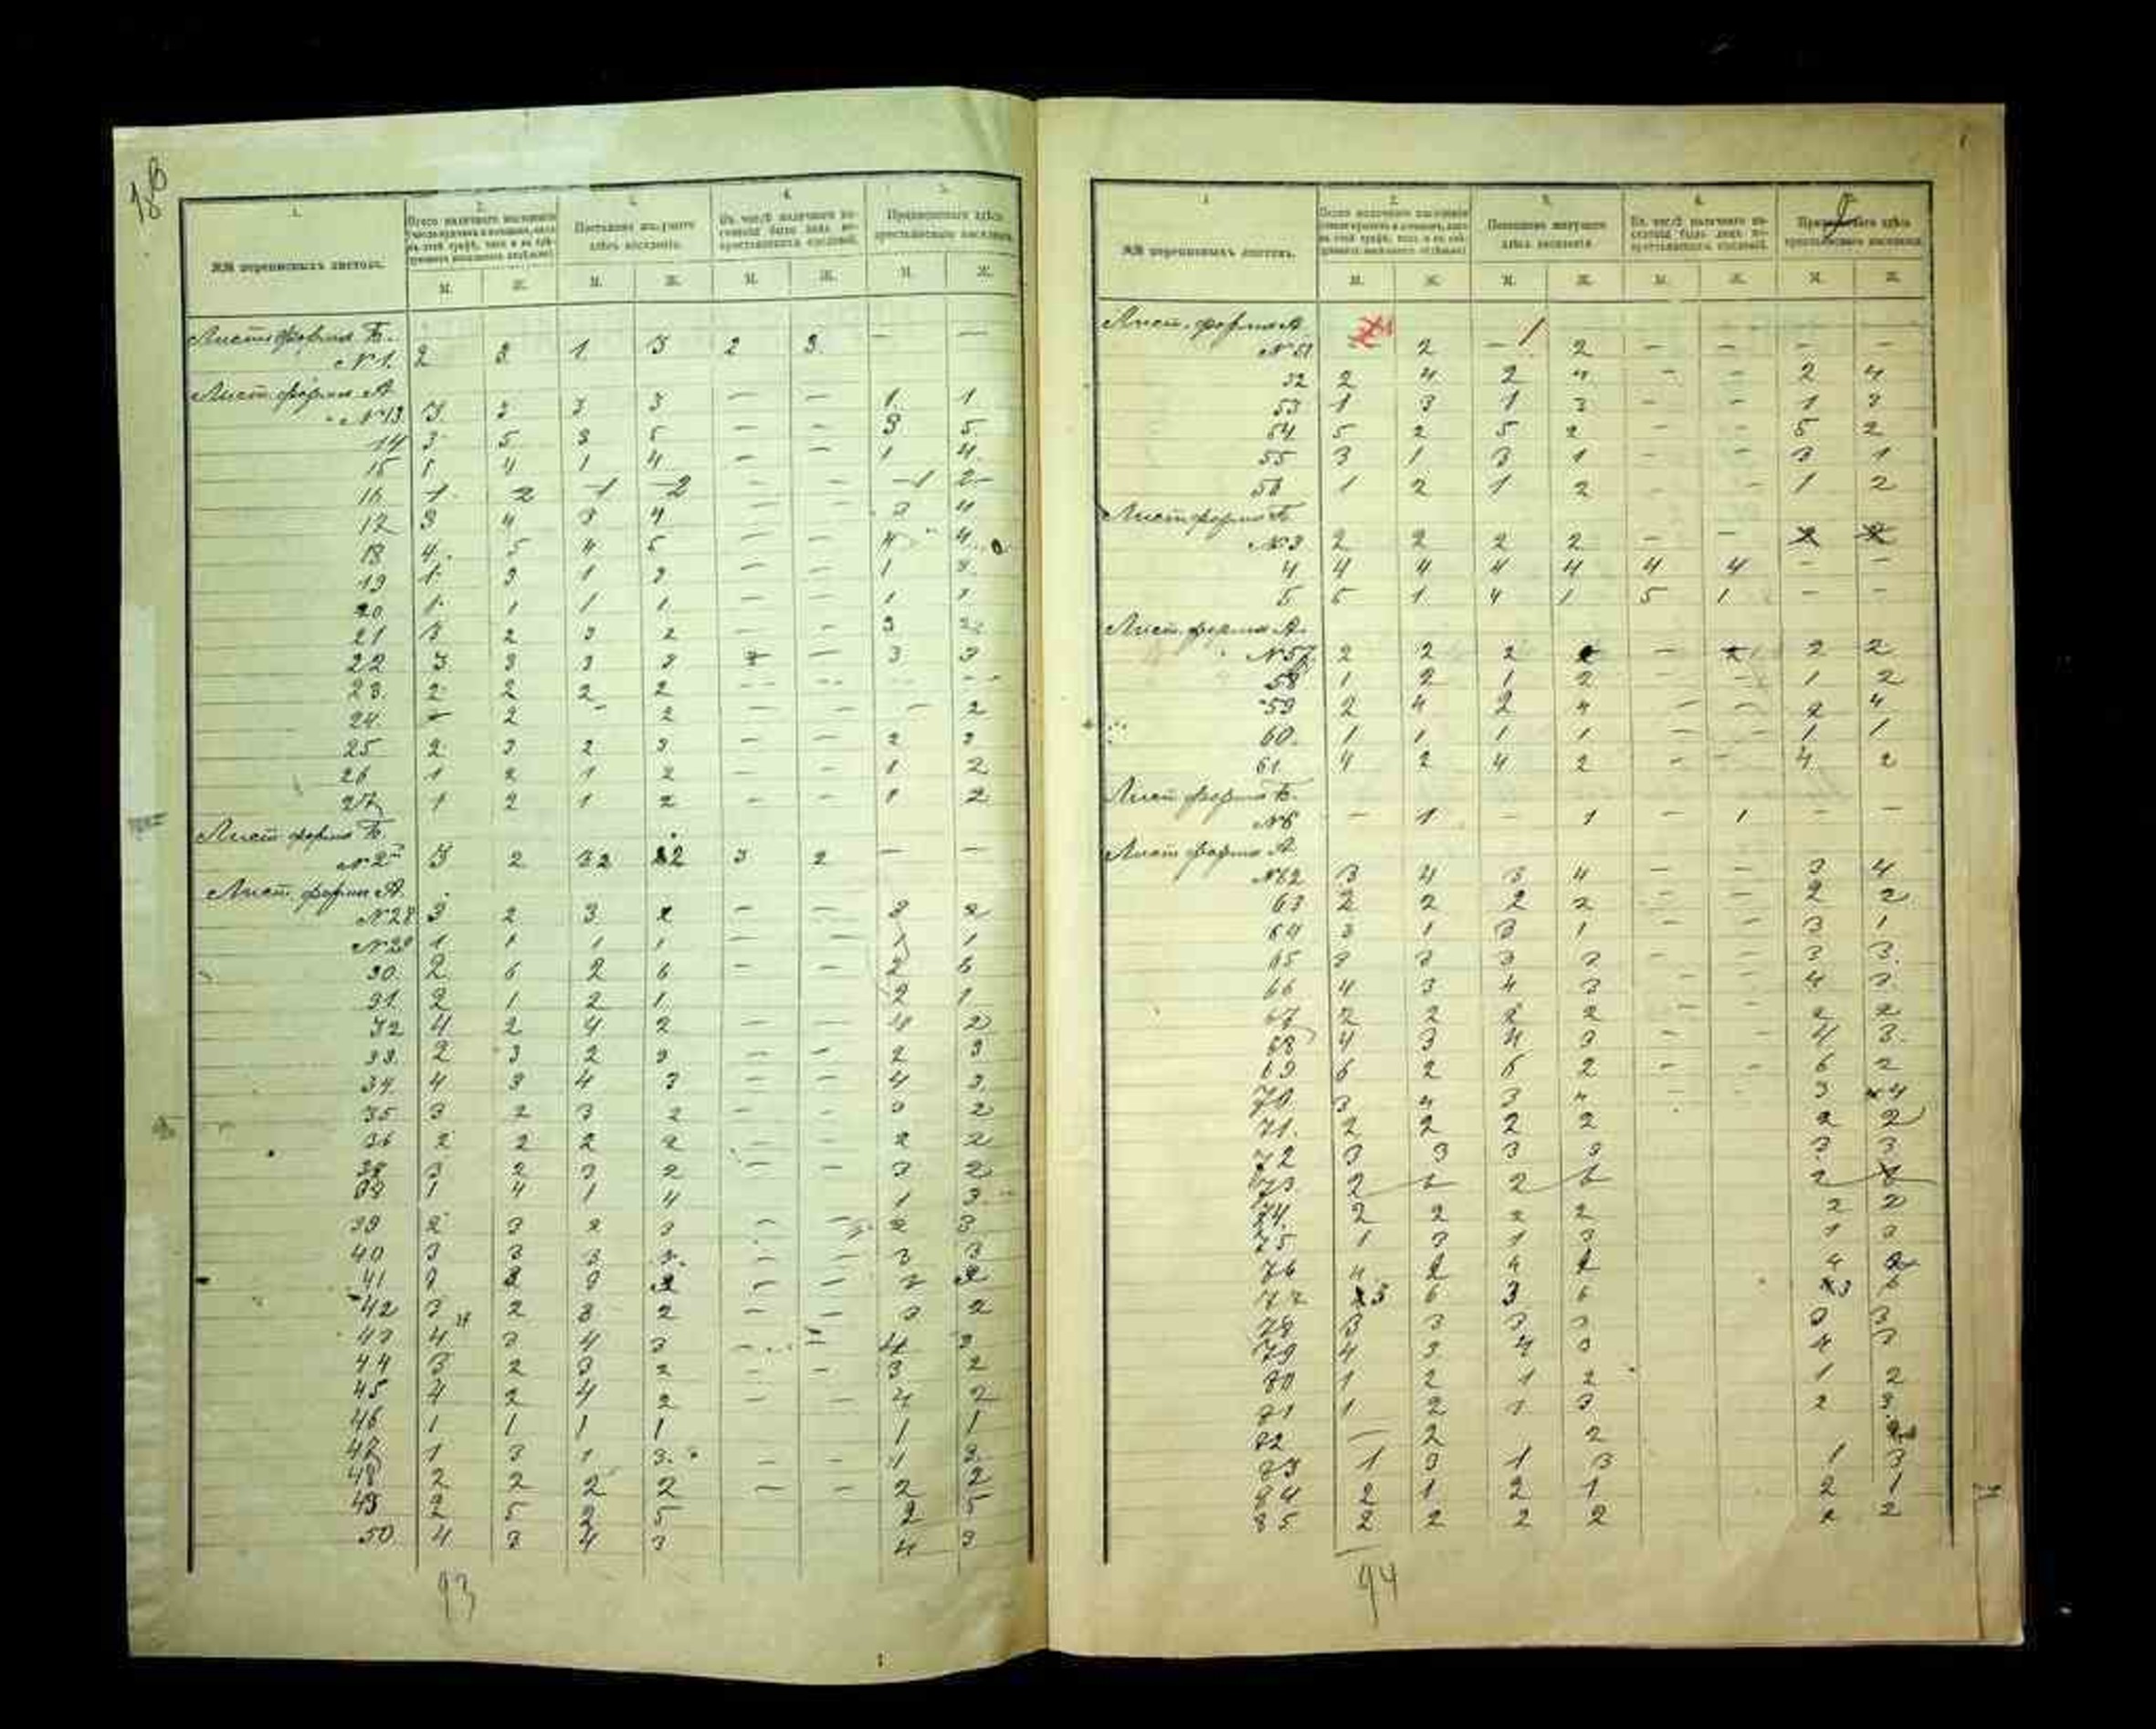 18
1. 2. 3. 4. 5.
№№ переписныхъ листовъ. Всего наличнаго населенія Постоянно живущаго здѣсь населенія. Въ числѣ наличнаго населенія было лицъ не-крестьянскихъ сословій. Приписнаго здѣсь крестьянскаго населенія.
М. Ж. М. Ж. М. Ж. М. Ж.
Лист. форма Б.
№ 1. 2 3 1 3 2 3. — —
Лист. форма А
№ 13. 3. 3 3 3 — — 1. 1
14 3 5 3 5 — — 3. 5.
15 1. 4 1 4 — — 1 4.
16 1 2 1 2 — — 1 2
17 3 4 3 4 — — 3 4
18 4. 5 4 5 — — 4 4.
19 1 3 1 3 — — 1 3.
20. 1. 1 1 1 — — 1 1
21 3 2 3 2 — — 3 2
22 3 3 3 3 — 3 3
23. 2 2 2 2 — — — —
24. — 2 — 2 — — — 2
25 2 3 2 3 — — 2 3
26 1 2 1 2 — — 1 2
27 1 2 1 2 — — 1 2
Лист форма Б.
№ 2 3 2 2 2 3 2 — —
Лист. форма А.
№ 28 3 2 3 2 — — 3 2
№ 29 1 1 1 1 — — 1 1
30. 2 6 2 6 — — 2 6
31. 2 1 2 1. 2 1
32 4 2 4 2 — — 4 2
33. 2 3 2 3 — — 2 3
34. 4 3 4 3 — — 4 3.
35 3 2 3 2 — — 3 2
36 2 2 2 2 — — 2 2
3 2 3 2 — — 3 2
1 4 1 4 1 3.
39 2 3 2 3 — — 2 3
40 3 3 3 3. — — 3 3
41 3 2 3 2 — — 3 2
42 3 2 3 2 — — 3 2
43 4 3 4 3 — — 4 3
44 3 2 3 2 — — 3 2
45 4 2 4 2 — — 4 2
46 1 1 1 1 1 1
47 1 3 1 3. — — 1 3.
48 2 2 2 2 — — 2 2
49 2 5 2 5 2 5
50. 4 3 4 3 4 3
93
1. 2. 3. 4.
№№ переписныхъ листовъ. Всего наличнаго населенія Постоянно живущаго здѣсь населенія. Въ числѣ наличнаго населенія было лицъ не-крестьянскихъ сословій. Приписнаго здѣсь крестьянскаго населенія.
М. Ж. М. Ж. М. Ж. М. Ж.
Лист. форма А
1
№ 51 — 2 — 2 — — — —
52 2 4 2 4 — — 2 4
53 1 3 1 3 — — 1 3
54 5 2 5 2 — — 5 2
55 3 1 3 1 — — 3 1
56 1 2 1 2 — — 1 2
Лист форма Б
№ 3 2 2 2 2 — —
4 4 4 4 4 4 4 — —
5 5 1 4 1 5 1 — —
Лист. форма А.
№ 57 2 2 2 — 2 2
58 1 2 1 2 — — 1 2
59 2 4 2 4 — — 2 4
60. 1 1 1 1 — — 1 1
61 4 2 4 2 — — 4 2
Лист форма Б.
№ 6 — 1 — 1 — 1 — —
Лист форма А
№ 62 3 4 3 4 — — 3 4
63 2 2 2 2 — — 2 2
64 3 1 3 1 — — 3 1
65 3 3 3 3 — — 3 3.
66 4 3 4 3 — — 4 3.
67 2 2 2 2 — — 2 2
68 4 3 4 3 — — 4 3.
69 6 2 6 2 — — 6 2
70. 3 4 3 4 — — 3 4
71. 2 2 2 2 2 2
72 3 3 3 3 3 3
73 2 2 2
74. 2 2 2 2 2 2
75. 1 3 1 3 1 3
76 4 2 4 2 4 2
77 3 6 3 6 3 6
78 3 3 3 3 3 3
79 4 3 4 3 4 3
80 1 2 1 2 1 2
81 1 2 1 3 2 3.
82 — 2 2
83 1 3 1 3 1 3
84 2 1 2 1 2 1
85 2 2 2 2 2 2
94